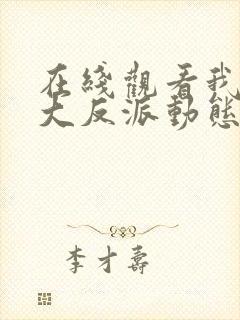 在綫觀看我
大反派動態
李才壽